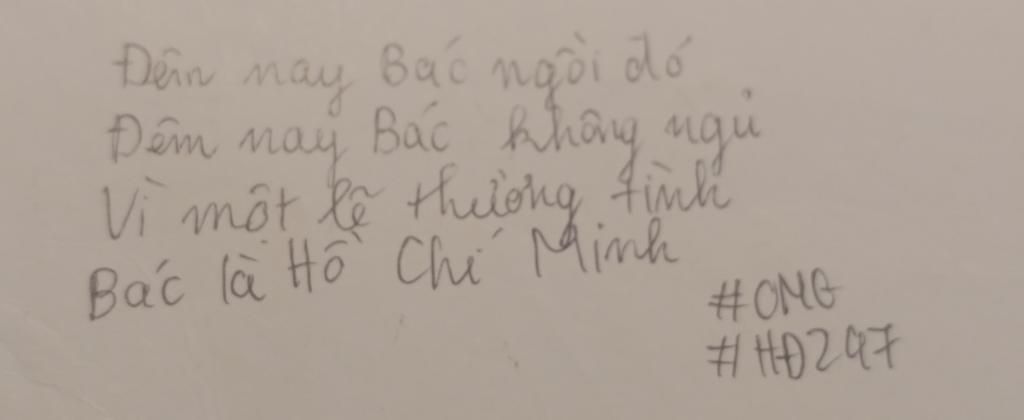 Đêm nay Bác ngồi đó
Đêm nay Bác không ngủ
Vì một lẽ thường tình
Bác là Hồ Chí Minh
#OMG
#HĐ247